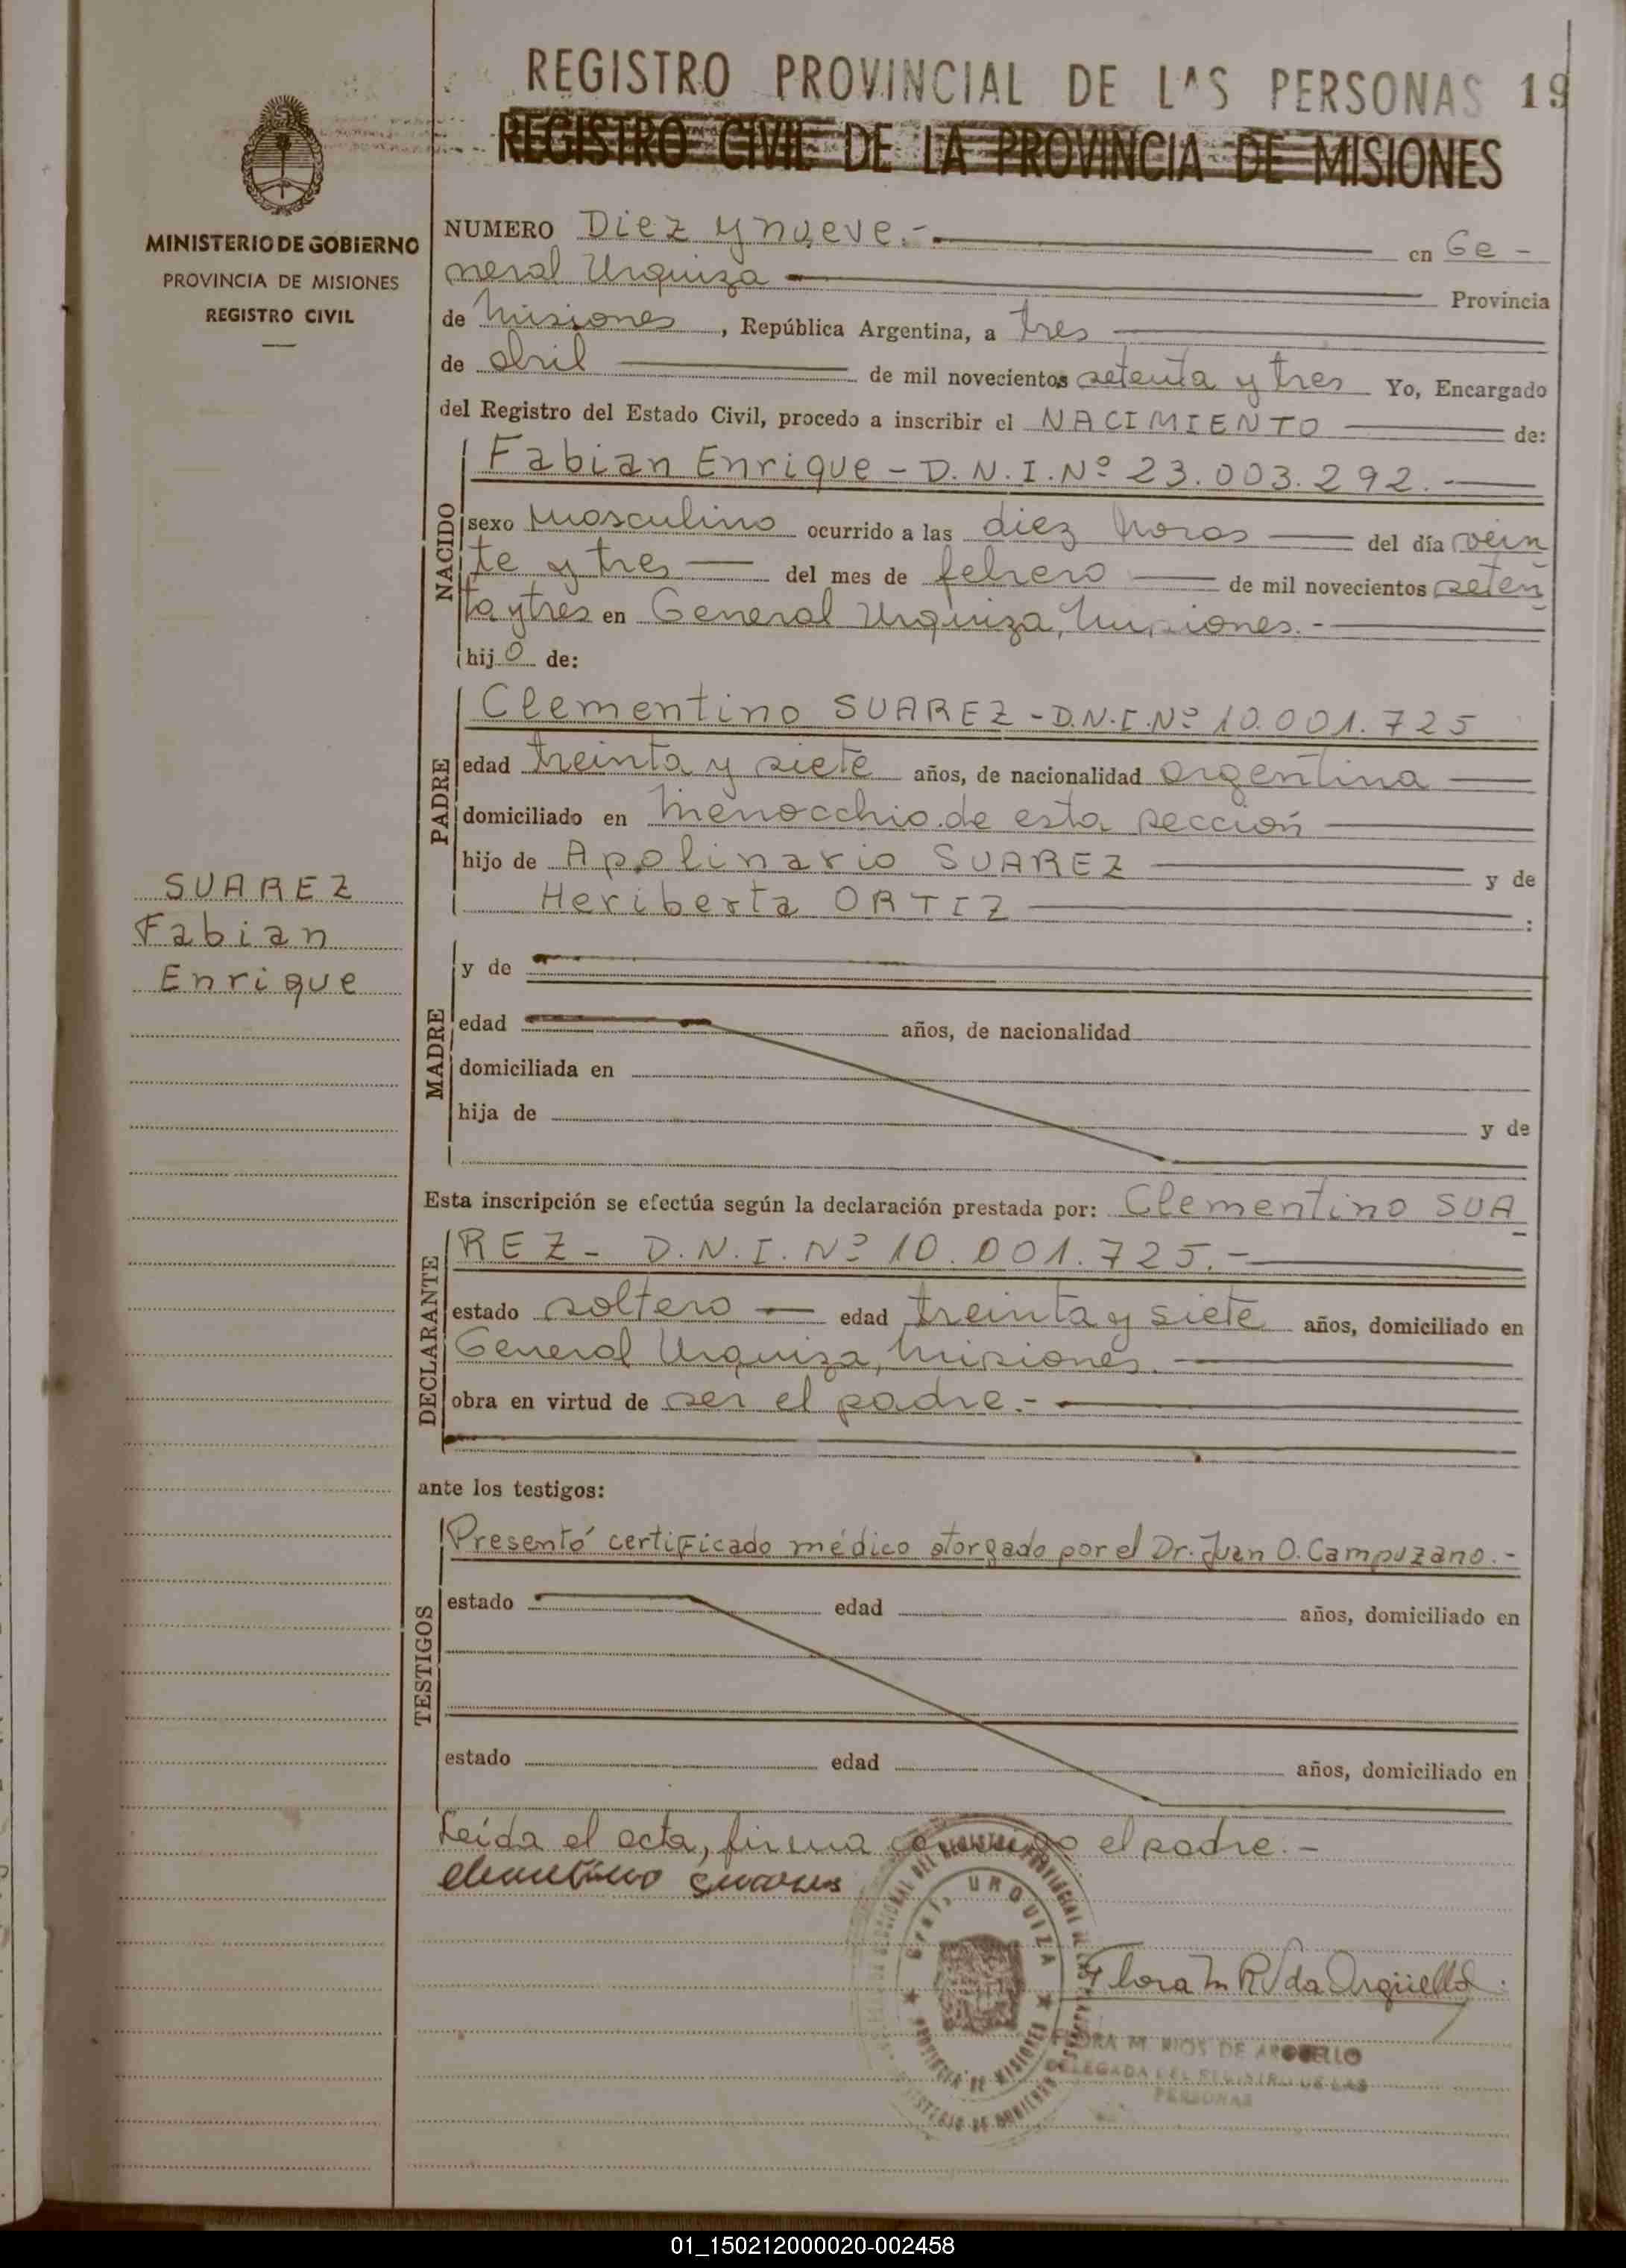 REGISTRO PROVINCIAL DE LAS PERSONAS 19
REGISTRO CIVIL DE LA PROVINCIA DE MISIONES
MINISTERIO DE GOBIERNO
PROVINCIA DE MISIONES
REGISTRO CIVIL
NUMERO Diez y nueve.- en Ge-
neral Urquiza Provincia
de Misiones, República Argentina, a tres
de abril de mil novecientos setenta y tres Yo, Encargado
del Registro del Estado Civil, procedo a inscribir el NACIMIENTO de:
NACIDO
Fabian Enrique - D.N.I. Nº 23.003.292.-
sexo masculino ocurrido a las diez horas del día vein
te y tres del mes de febrero de mil novecientos seten
ta y tres en General Urquiza, Misiones.-
hijo de:
PADRE
Clementino SUAREZ - D.N.I. Nº 10.001.725
edad treinta y siete años, de nacionalidad argentina
domiciliado en Menocchio de esta sección
hijo de Apolinario SUAREZ y de
Heriberta ORTIZ :
SUAREZ
Fabian
Enrique
MADRE
y de
edad años, de nacionalidad
domiciliada en
hija de y de
Esta inscripción se efectúa según la declaración prestada por: Clementino SUA
DECLARANTE
REZ - D.N.I. Nº 10.001.725.-
estado soltero edad treinta y siete años, domiciliado en
General Urquiza, Misiones.
obra en virtud de ser el padre.-
ante los testigos:
TESTIGOS
Presentó certificado médico otorgado por el Dr. Juan O. Campuzano.-
estado edad años, domiciliado en
estado edad años, domiciliado en
Leída el acta, firma conmigo el padre.-
clementino suares
GRAL. URQUIZA
PROVINCIA DE MISIONES
Flora M R. de Argüello
FLORA M. RIOS DE ARGUELLO
DELEGADA DEL REGISTRO DE LAS
PERSONAS
01_150212000020-002458